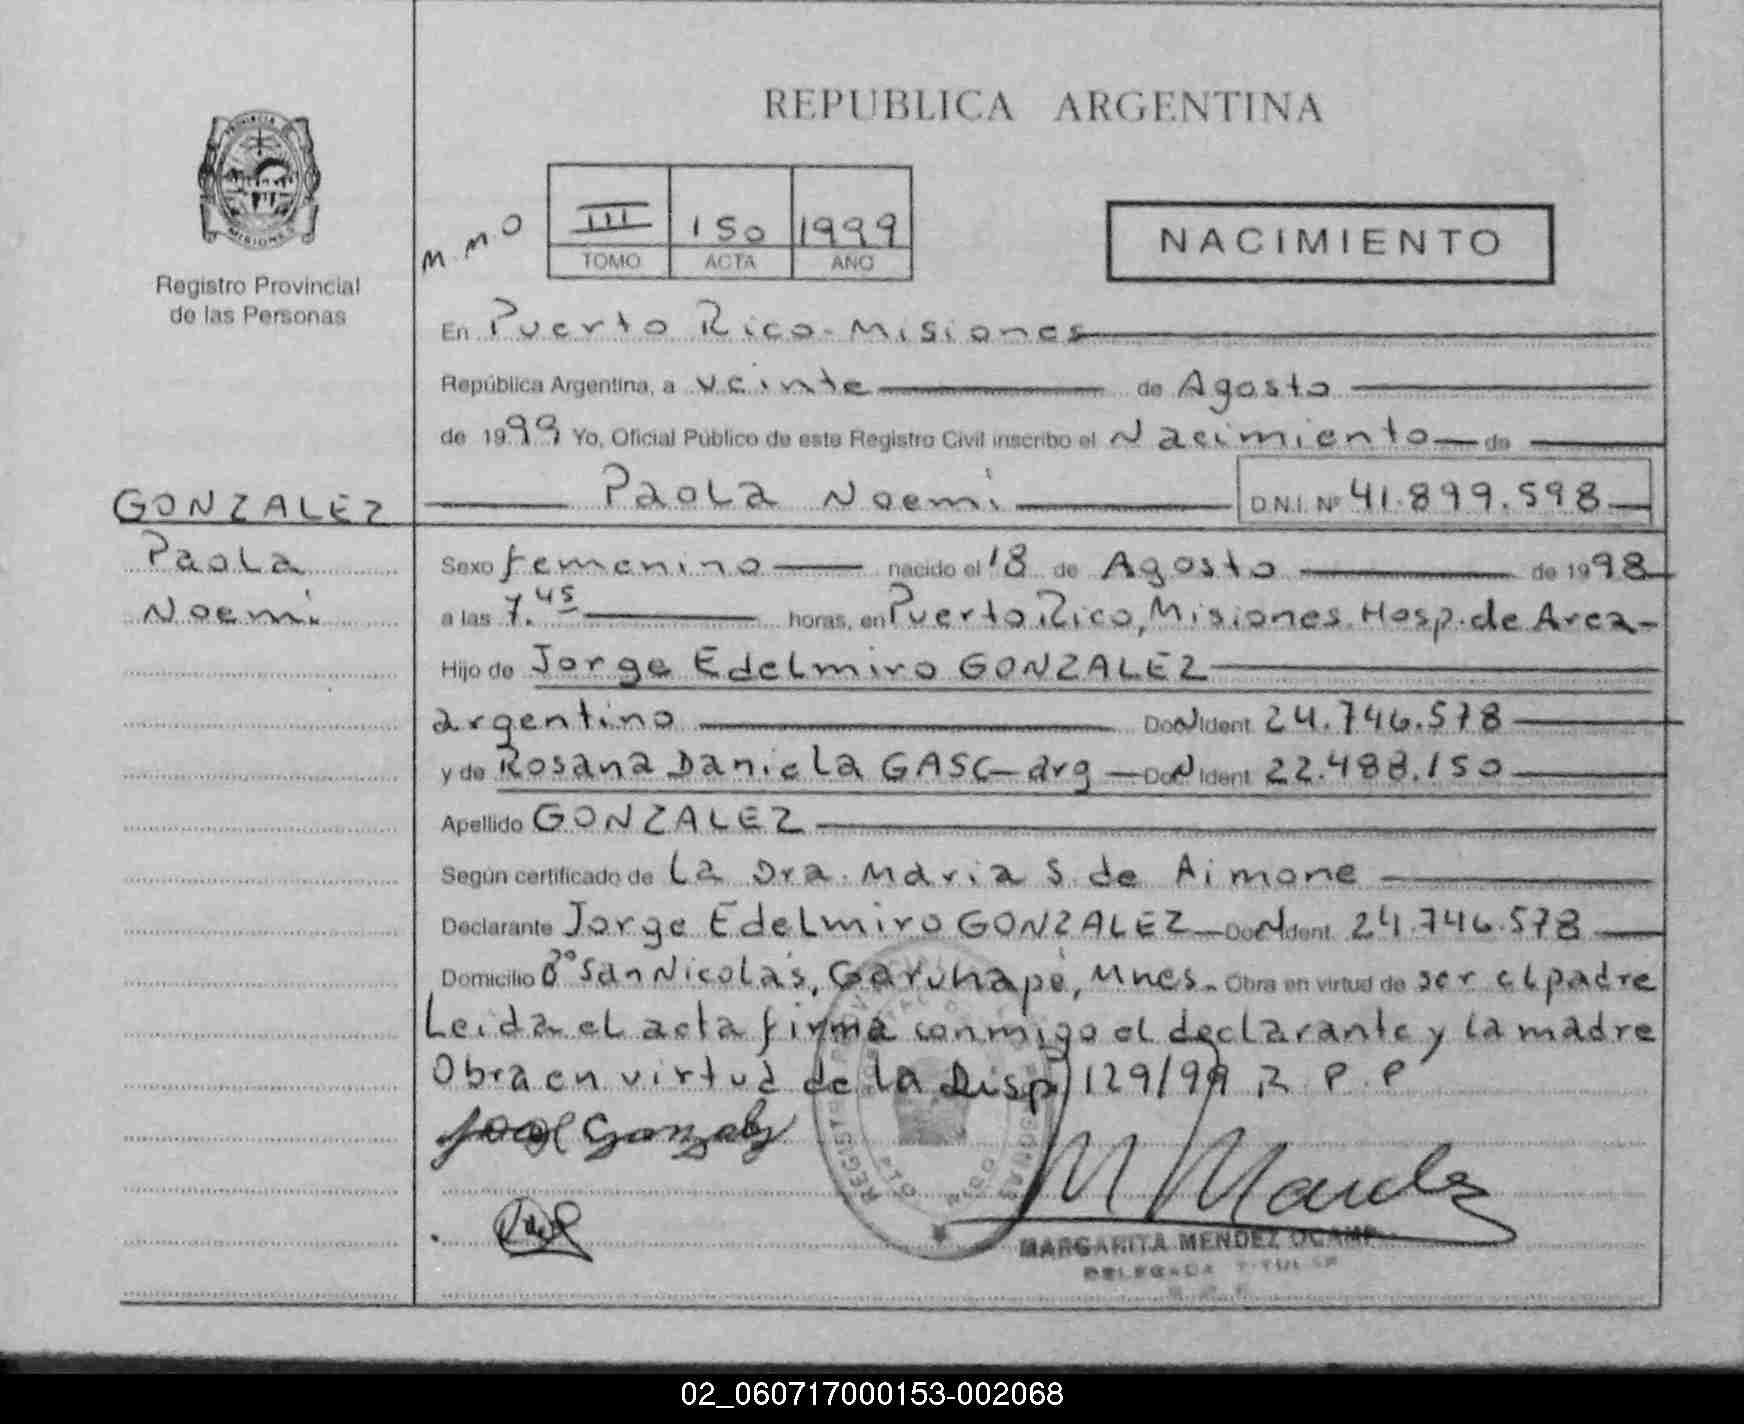 REPUBLICA ARGENTINA
PROVINCIA
MISIONES
Registro Provincial
de las Personas
M.M.O
III 150 1999
TOMO ACTA AÑO
NACIMIENTO
En Puerto Rico - Misiones
República Argentina, a veinte de Agosto
de 1999 Yo, Oficial Público de este Registro Civil inscribo el Nacimiento de
Paola Noemi D.N.I. Nº 41.899.598
GONZALEZ
Paola
Noemi.
Sexo femenino nacido el 18 de Agosto de 1998
a las 7.45 horas, en Puerto Rico, Misiones. Hosp. de Area-
Hijo de Jorge Edelmiro GONZALEZ
argentino Doc N Ident 24.746.578
y de Rosana Daniela GASC- arg - Doc N Ident 22.488.150
Apellido GONZALEZ
Según certificado de la Dra. Maria S. de Aimone
Declarante Jorge Edelmiro GONZALEZ - Doc N Ident. 24.746.578
Domicilio Bº San Nicolás, Garuhapé, Mnes. Obra en virtud de ser el padre
Leida el acta firma conmigo el declarante y la madre
Obra en virtud de la Disp 129/99 R P P
MARGARITA MENDEZ OCAMP
DELEGADA TITULAR
02_060717000153-002068